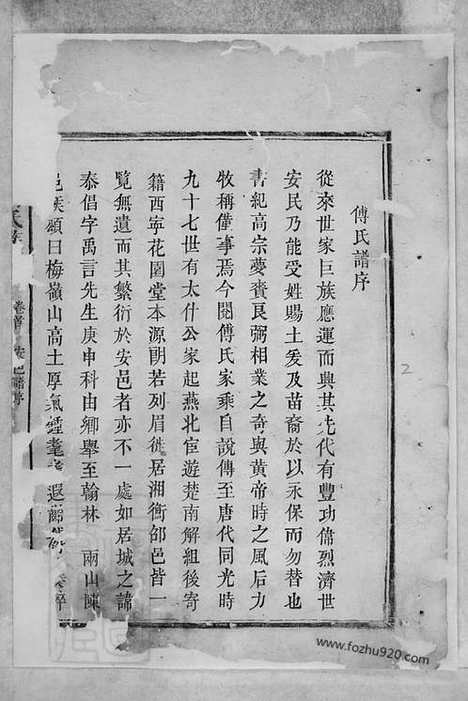 傅氏譜序
從來世家巨族應運而興其先代有豐功偉烈濟世
安民乃能受姓賜土爰及苗裔於以永保而勿替也
書紀高宗夢賚良弼相業之奇與黃帝時之風后力
牧稱僅事焉今閱傅氏家乘自說傳至唐代同光時
九十七世有太什公家起燕北宦遊楚南解組後寄
籍西寧花園堂本源朗若列眉徙居湘衡邵邑皆一
覽無遺而其繁衍於安邑者亦不一處如居城之諱
泰倡字禹言先生庚申科由鄉舉至翰林 兩山陳
邑族頌曰梅嶺山高土厚氣鍾耄
氏族
卷首
譜序
2
www.fozhu920.com